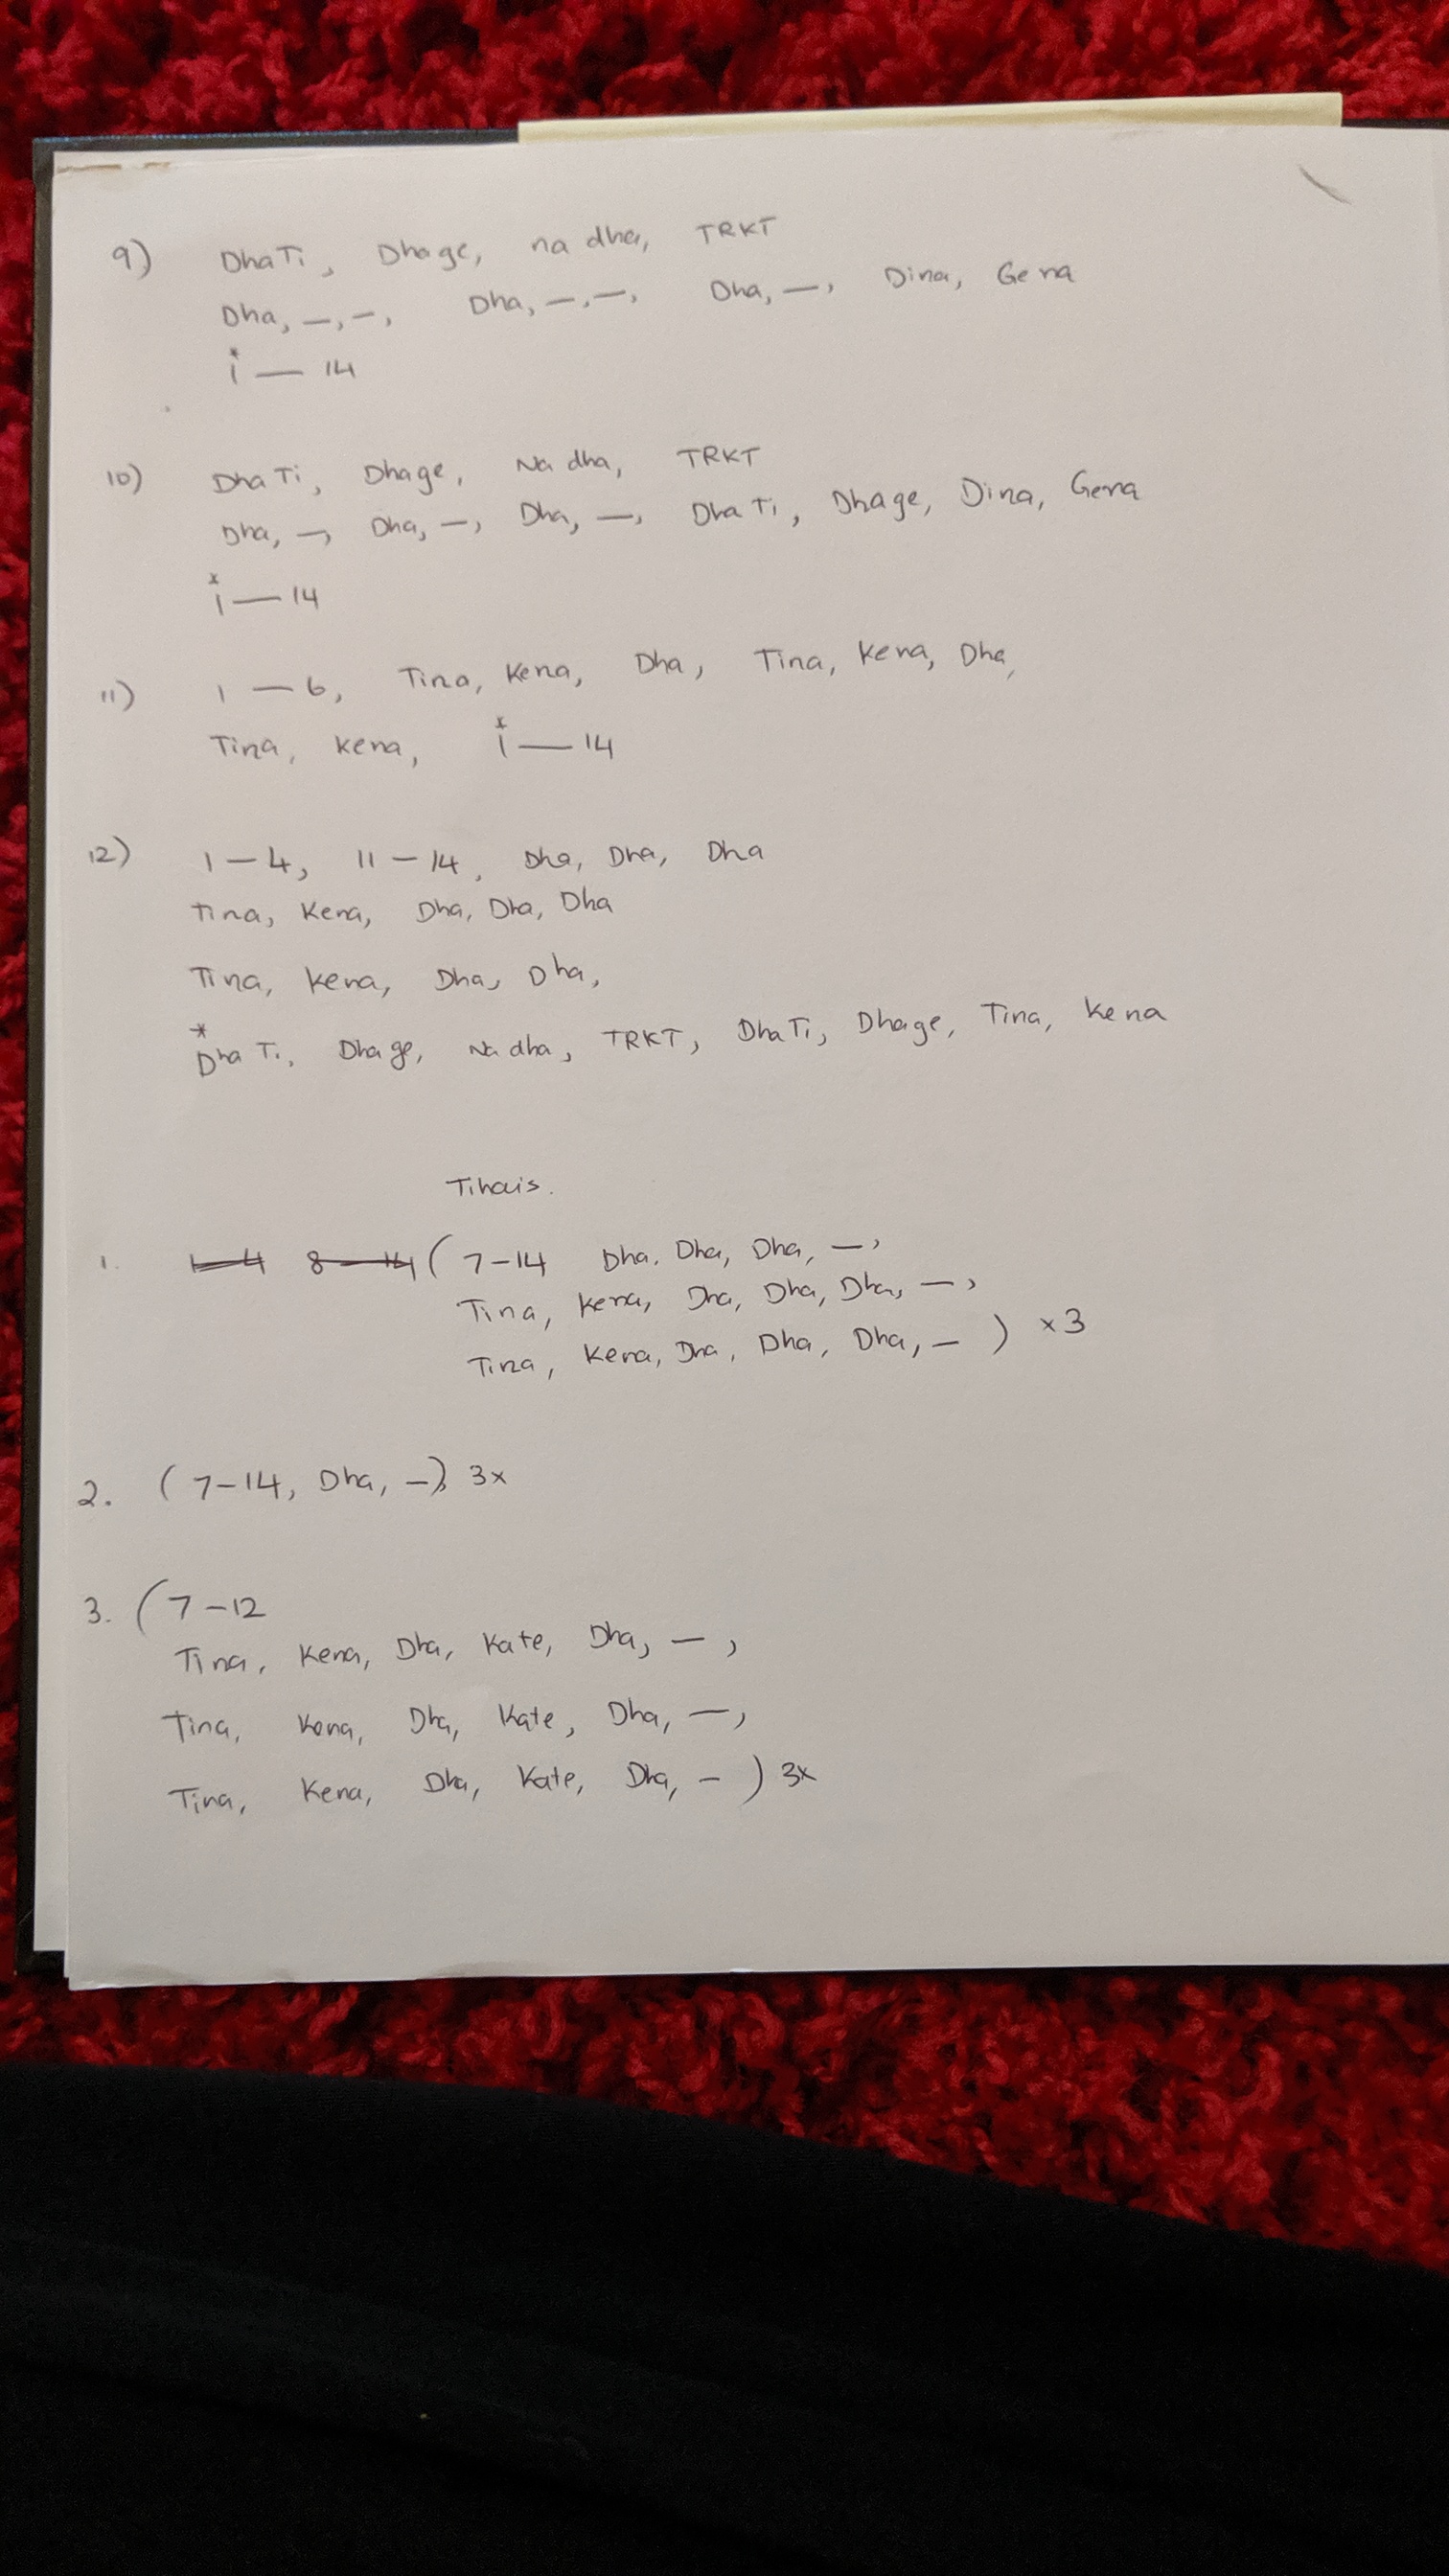 9) DhaTi, Dhage, na dha, TRKT
Dha, —, –, Dha, –, –, Dha, —, Dina, Gena
* 1 — 14
10) DhaTi, Dhage, Na dha, TRKT
Dha, –, Dha, –, Dha, —, DhaTi, Dhage, Dina, Gena
x 1 — 14
11) 1 — 6, Tina, Kena, Dha, Tina, Kena, Dha,
Tina, Kena, x 1 — 14
12) 1 – 4, 11 – 14, Dha, Dha, Dha
Tina, Kena, Dha, Dha, Dha
Tina, Kena, Dha, Dha,
*
DhaTi, Dhage, Na dha, TRKT, DhaTi, Dhage, Tina, Kena
Tihais.
1. 1–4 8–14 ( 7–14 Dha, Dha, Dha, —,
Tina, Kena, Dha, Dha, Dha, —,
Tina, Kena, Dha, Dha, Dha, – ) x3
2. ( 7–14, Dha, –) 3x
3. ( 7–12
Tina, Kena, Dha, Kate, Dha, —,
Tina, Kena, Dha, Kate, Dha, —,
Tina, Kena, Dha, Kate, Dha, – ) 3x